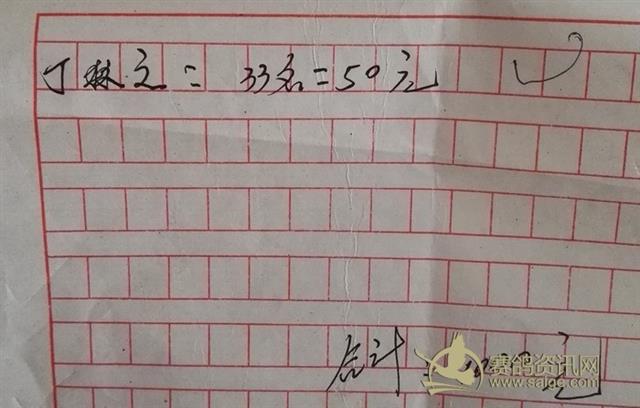 丁 之 = 33名 = 50元
合计 元
赛鸽资讯网
www.saige.com